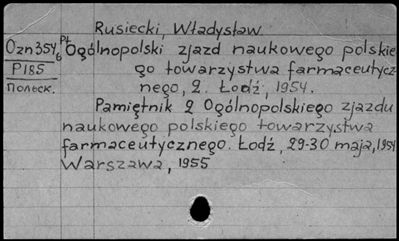 Rusiecki, Władysław
Ozn354,6
P185
Польск.
Pt Ogólnopolski zjazd naukowego polskie-
go towarzystwa farmaceutycz-
nego, 2. Łodź, 1954.
Pamiętnik 2 Ogólnopolskiego zjazdu
naukowego polskiego towarzystwa
farmaceutycznego. Łodź, 29-30 maja, 1954
Warszawa, 1955